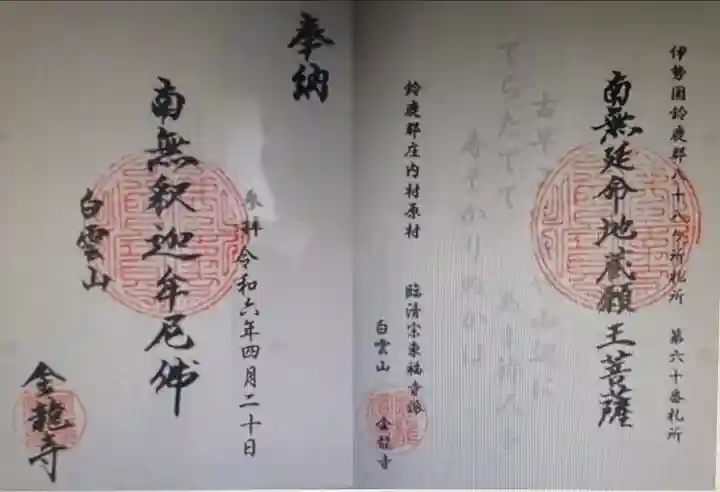 伊勢國鈴鹿郡八十八ケ所札所 第六十番札所
南無延命地蔵願王菩薩
古早
山辺に
てらたてて
鈴鹿郡庄内村原村 臨済宗東福寺派
白雲山 金龍寺
奉納
参拝 令和六年四月二十日
南無釈迦牟尼佛
白雲山
金龍寺